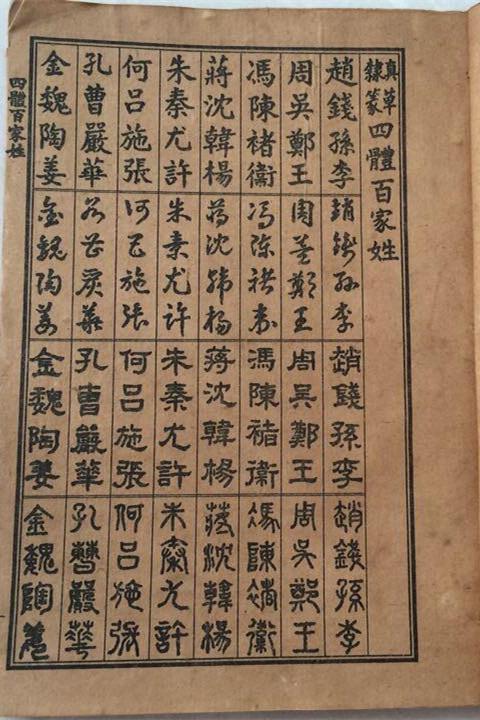 真草隸篆四體百家姓
趙錢孫李 趙錢孫李 趙錢孫李 趙錢孫李
周吳鄭王 周吳鄭王 周吳鄭王 周吳鄭王
馮陳褚衞 馮陳褚衞 馮陳褚衞 馮陳褚衞
蔣沈韓楊 蔣沈韓楊 蔣沈韓楊 蔣沈韓楊
朱秦尤許 朱秦尤許 朱秦尤許 朱秦尤許
何吕施張 何吕施張 何吕施張 何吕施張
孔曹嚴華 孔曹嚴華 孔曹嚴華 孔曹嚴華
金魏陶姜 金魏陶姜 金魏陶姜 金魏陶姜
四體百家姓